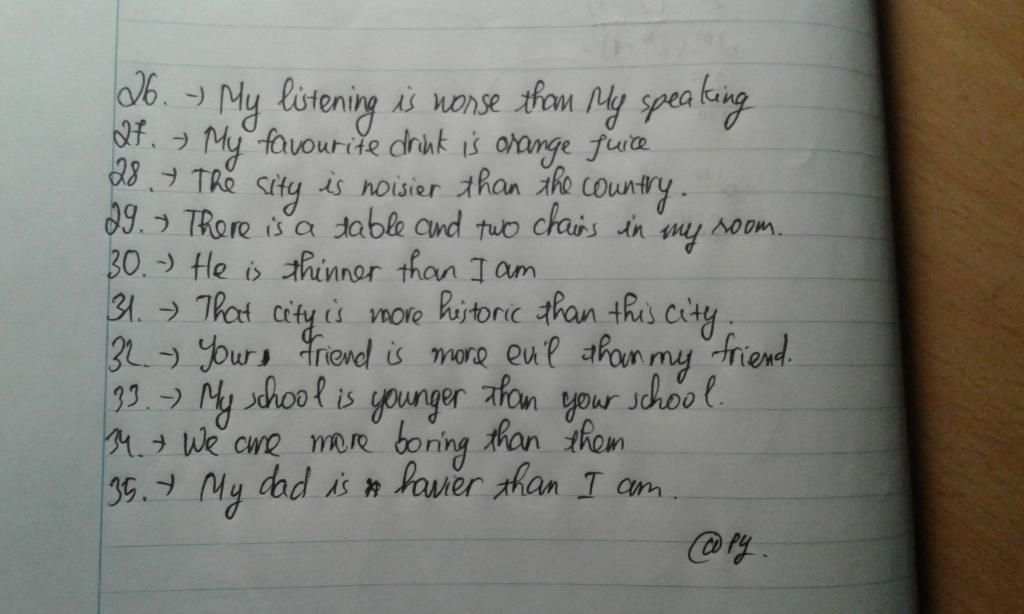 26. → My listening is worse than My speaking
27. → My favourite drink is orange juice
28. → The city is noisier than the country.
29. → There is a table and two chairs in my room.
30. → He is thinner than I am
31. → That city is more historic than this city.
32. → Your friend is more evil than my friend.
33. → My school is younger than your school.
34. → We are more boring than them
35. → My dad is havier than I am.
@Py.